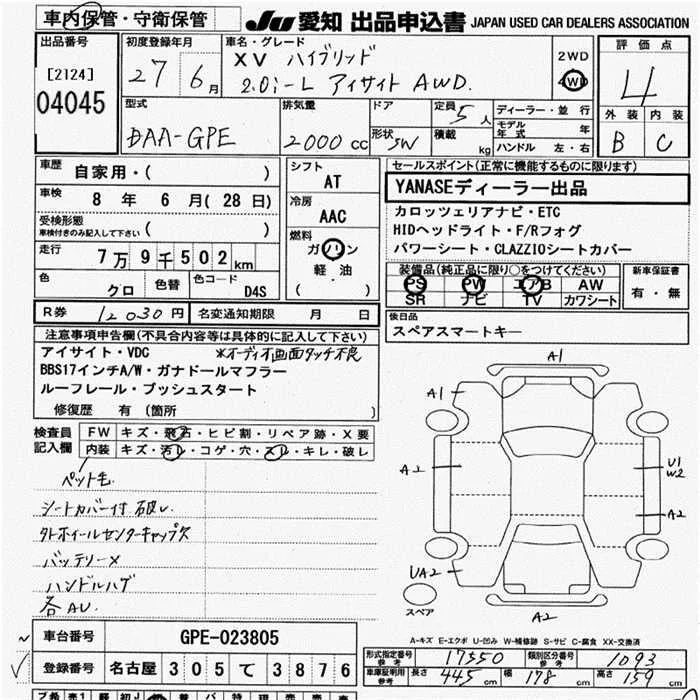 車内保管・守衛保管
JU 愛知 出品申込書 JAPAN USED CAR DEALERS ASSOCIATION
出品番号
[2124]
04045
初度登録年月
27 6月
車名・グレード
XV ハイブリッド
2.0i-L アイサイト AWD.
2WD
4WD
評価点
4
外装 内装
B C
型式
DAA-GPE
排気量
2000 CC
ドア
形状 SW
定員 5人
積載 kg
ディーラー・並行
モデル年式 年
ハンドル 左・右
車歴
自家用・( )
車検
8 年 6 月 (28 日)
受検形態
車検付きのみ記入して下さい ( )
走行
7万9千502km
色
クロ
色替
色コード
D4S
シフト
AT
冷房
AAC
燃料
ガソリン
軽・油
( )
セールスポイント(正常に機能するものに限ります)
YANASEディーラー出品
カロッツェリアナビ・ETC
HIDヘッドライト・F/Rフォグ
パワーシート・CLAZZIOシートカバー
装備品(純正品に限り○をつけてください)
PS PW エアB AW
SR ナビ TV カワシート
新車保証書
有・無
R券 12030円
名変通知期限 月 日
後日品
スペアスマートキー
注意事項申告欄(不具合内容等は具体的に記入して下さい)
アイサイト・VDC ※オーディオ画面タッチ不良
BBS17インチA/W・ガナドールマフラー
ルーフレール・プッシュスタート
修復歴 有 (箇所 )
検査員記入欄
FW キズ・飛石・ヒビ割・リペア跡・X要
内装 キズ・汚レ・コゲ・穴・スレ・キレ・破レ
ペット毛
シートカバー付 破レ
タトホイールセンターキャップ欠
バッテリー×
ハンドルハゲ
各AU.
A1
A1
A2
U1
W2
A2
UA2
スペア
A2
A-キズ E-エクボ U-凹み W-補修跡 S-サビ C-腐食 XX-交換済
車台番号 GPE-023805
登録番号 名古屋 305 て 3876
形式指定番号 参考 17550
類別区分番号 参考 1093
車庫証明用 参考 長さ 445 cm 幅 178 cm 高さ 159 cm